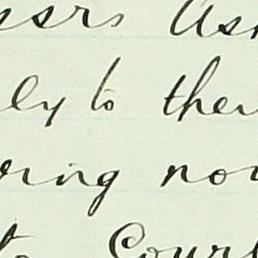 ssrs Ash
ly to ther
ering nor
to Court